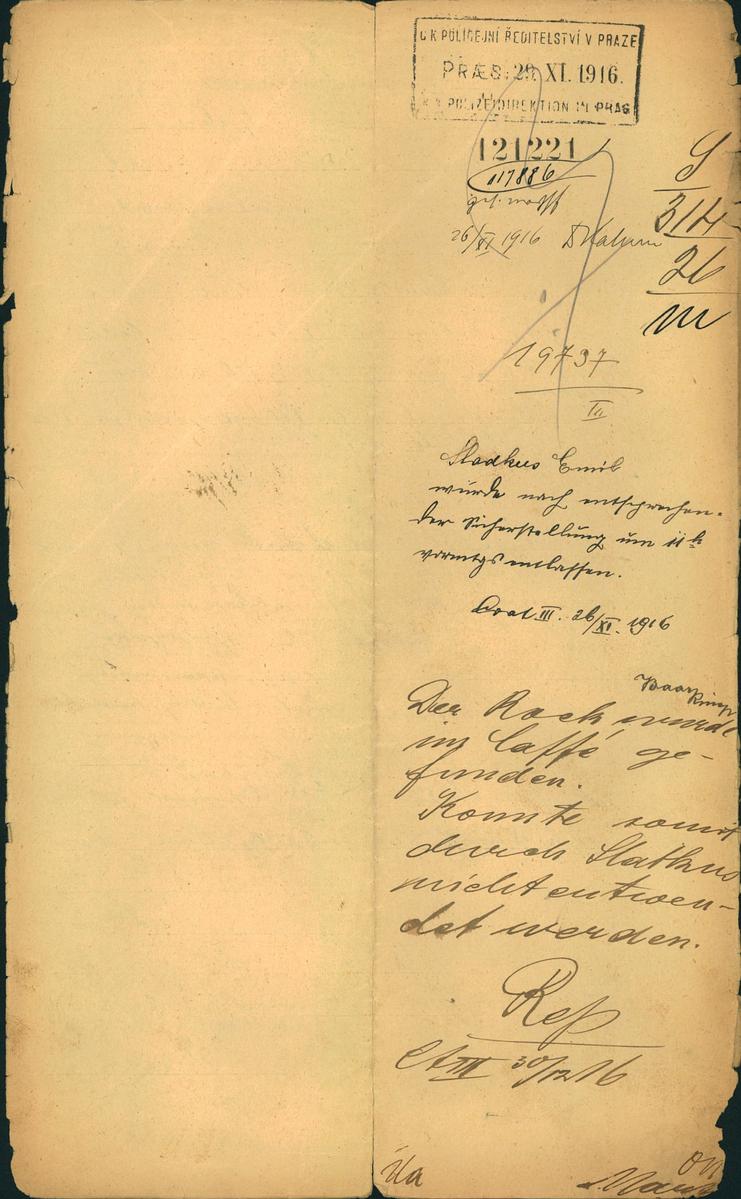 C.K. POLICEJNÍ ŘEDITELSTVÍ V PRAZE
PRÆS: 29. XI. 1916.
K.K. POLIZEIDIREKTION IN PRAG
121221
117886
26/XI 1916
S
314
26
m
19737
III
Sladkus Emil
wurde nach entsprechen-
der Sicherstellung um 11h
vormtgs entlassen.
III. 26/XI. 1916
Der Rock wurde
im Caffé ge-
funden.
Konnte somit
durch Slatkus
nicht entwen-
det werden.
Rep
III 30/12 16